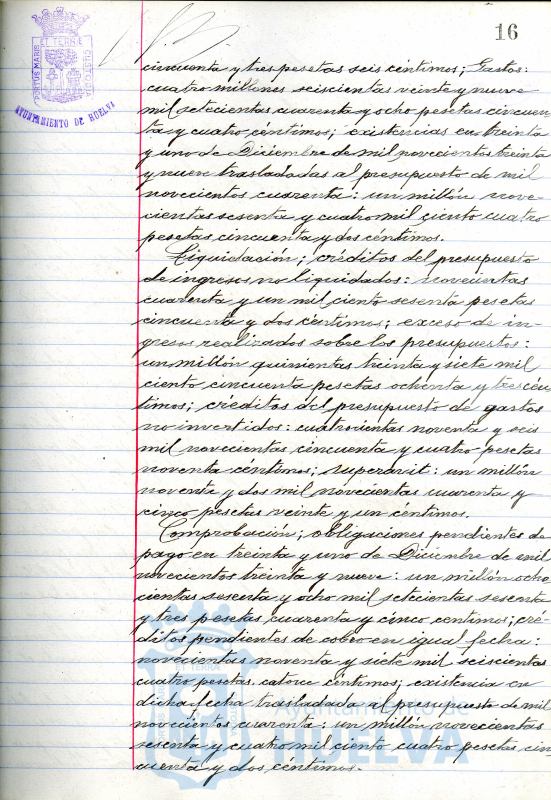 16
PORTUS MARIS ET TERRÆ CUSTODIA
AYUNTAMIENTO DE HUELVA
cincuenta y tres pesetas seis céntimos; Gastos:
cuatro millones seiscientas veinte y nueve
mil setecientas cuarenta y ocho pesetas cincuen
ta y cuatro céntimos; existencias en treinta
y uno de Diciembre de mil novecientos treinta
y nueve trasladadas al presupuesto de mil
novecientos cuarenta: un millón nove-
cientas sesenta y cuatro mil ciento cuatro
pesetas cincuenta y dos céntimos.
Liquidación; créditos del presupuesto
de ingresos no liquidados: novecientas
cuarenta y un mil ciento sesenta pesetas
cincuenta y dos céntimos; exceso de in-
gresos realizados sobre los presupuestos:
un millón quinientas treinta y siete mil
ciento cincuenta pesetas ochenta y tres cén
timos; créditos del presupuesto de gastos
no invertidos: cuatrocientas noventa y seis
mil novecientas cincuenta y cuatro pesetas
noventa centimos; superavit: un millón
noventa y dos mil novecientas cuarenta y
cinco pesetas veinte y un céntimos.
Comprobación; obligaciones pendientes de
pago en treinta y uno de Diciembre de mil
novecientos treinta y nueve: un millón ocho
cientas sesenta y ocho mil setecientas sesenta
y tres pesetas cuarenta y cinco centimos; cré-
ditos pendientes de cobro en igual fecha:
novecientas noventa y siete mil seiscientas
cuatro pesetas catorce céntimos; existencia en
dicha fecha trasladada al presupuesto de mil
novecientos cuarenta: un millón novecientas
sesenta y cuatro mil ciento cuatro pesetas cin
cuenta y dos céntimos.-
Ayuntamiento de
HUELVA